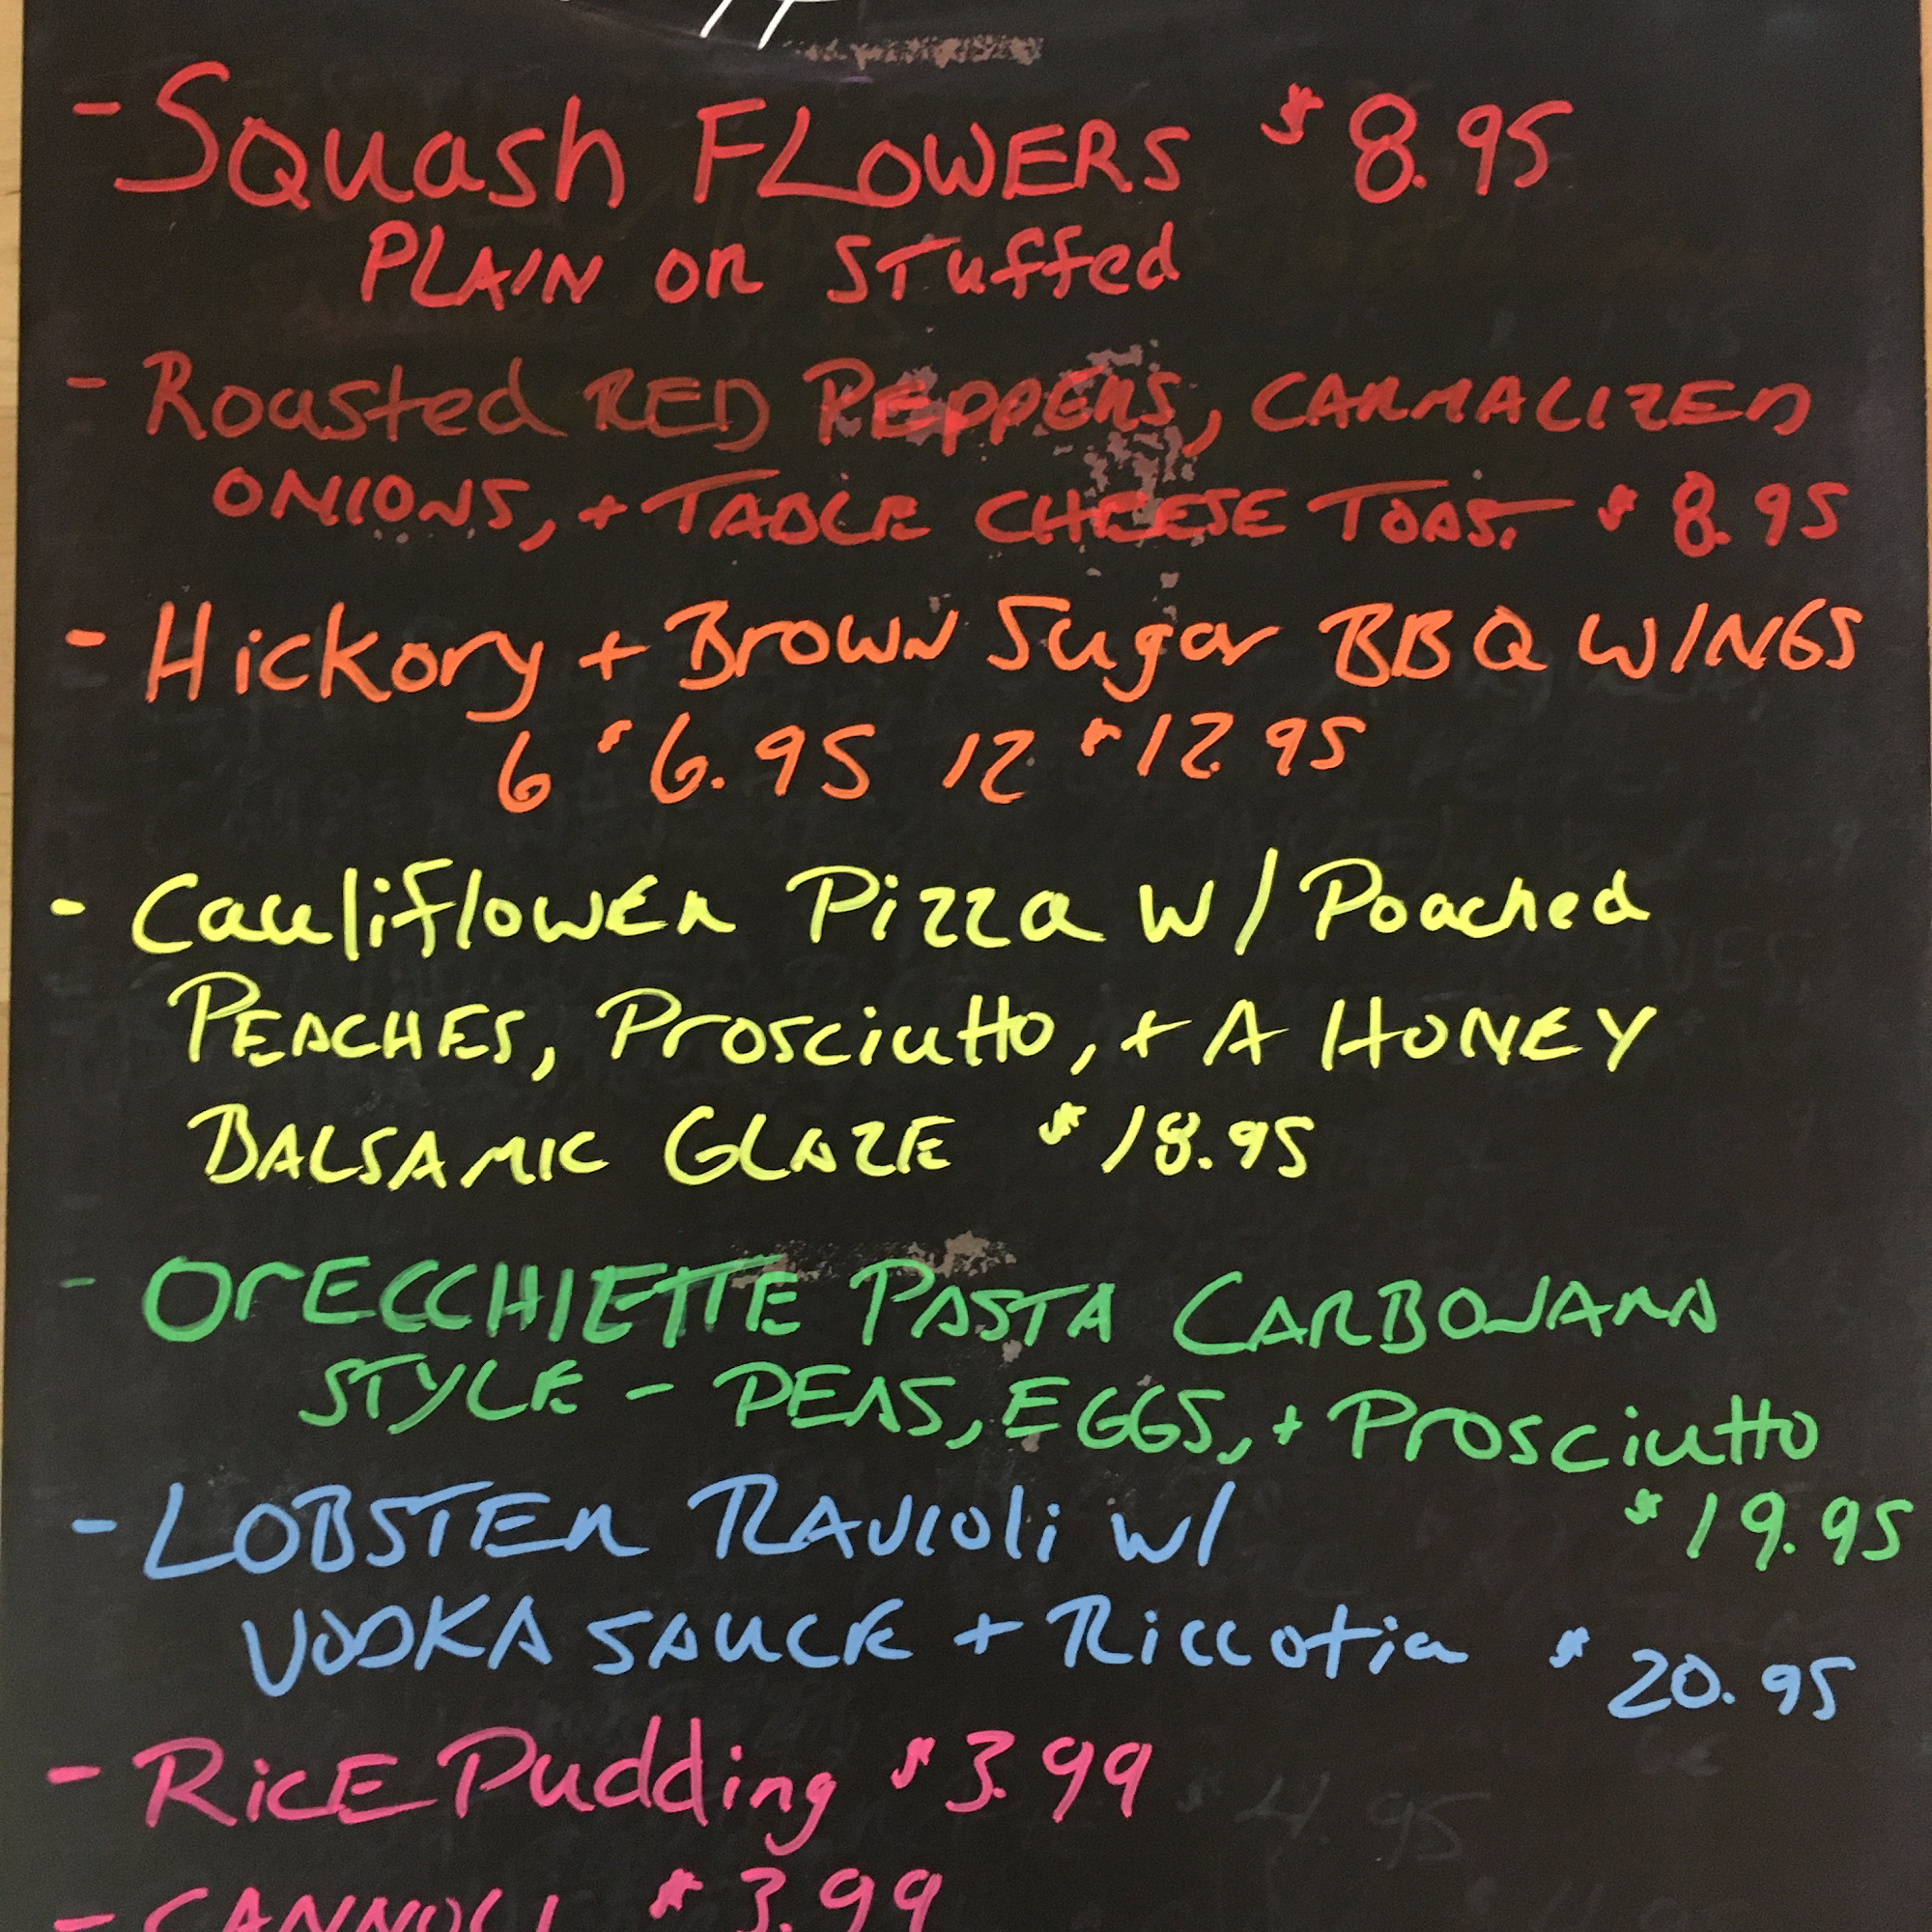 - Squash FLOWERS $8.95
PLAIN OR STuffed
- Roasted RED PEPPERS, CARMALIZED
ONIONS, + TABLE CHEESE TOAST $8.95
- Hickory + BROWN Sugar BBQ WINGS
6 $6.95 12 $12.95
- CauliflowER Pizza w/ Poached
PEACHES, Prosciutto, + A HONEY
BALSAMIC GLAZE $18.95
- OrECCHIETTE PASTA CARBONARA
STYLE - PEAS, EGGS, + Prosciutto
$19.95
- LOBSTER RAVIOLi w/
VODKA SAUCE + Riccotta $20.95
- RicE Pudding $3.99
- CANNOLI $3.99